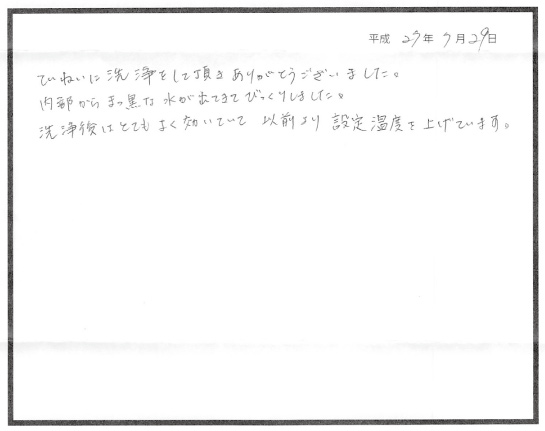 平成 27年 7月 29日
ていねいに洗浄をして頂きありがとうございました。
内部からまっ黒な水が出てきてびっくりしました。
洗浄後はとてもよく効いていて 以前より 設定温度を上げています。